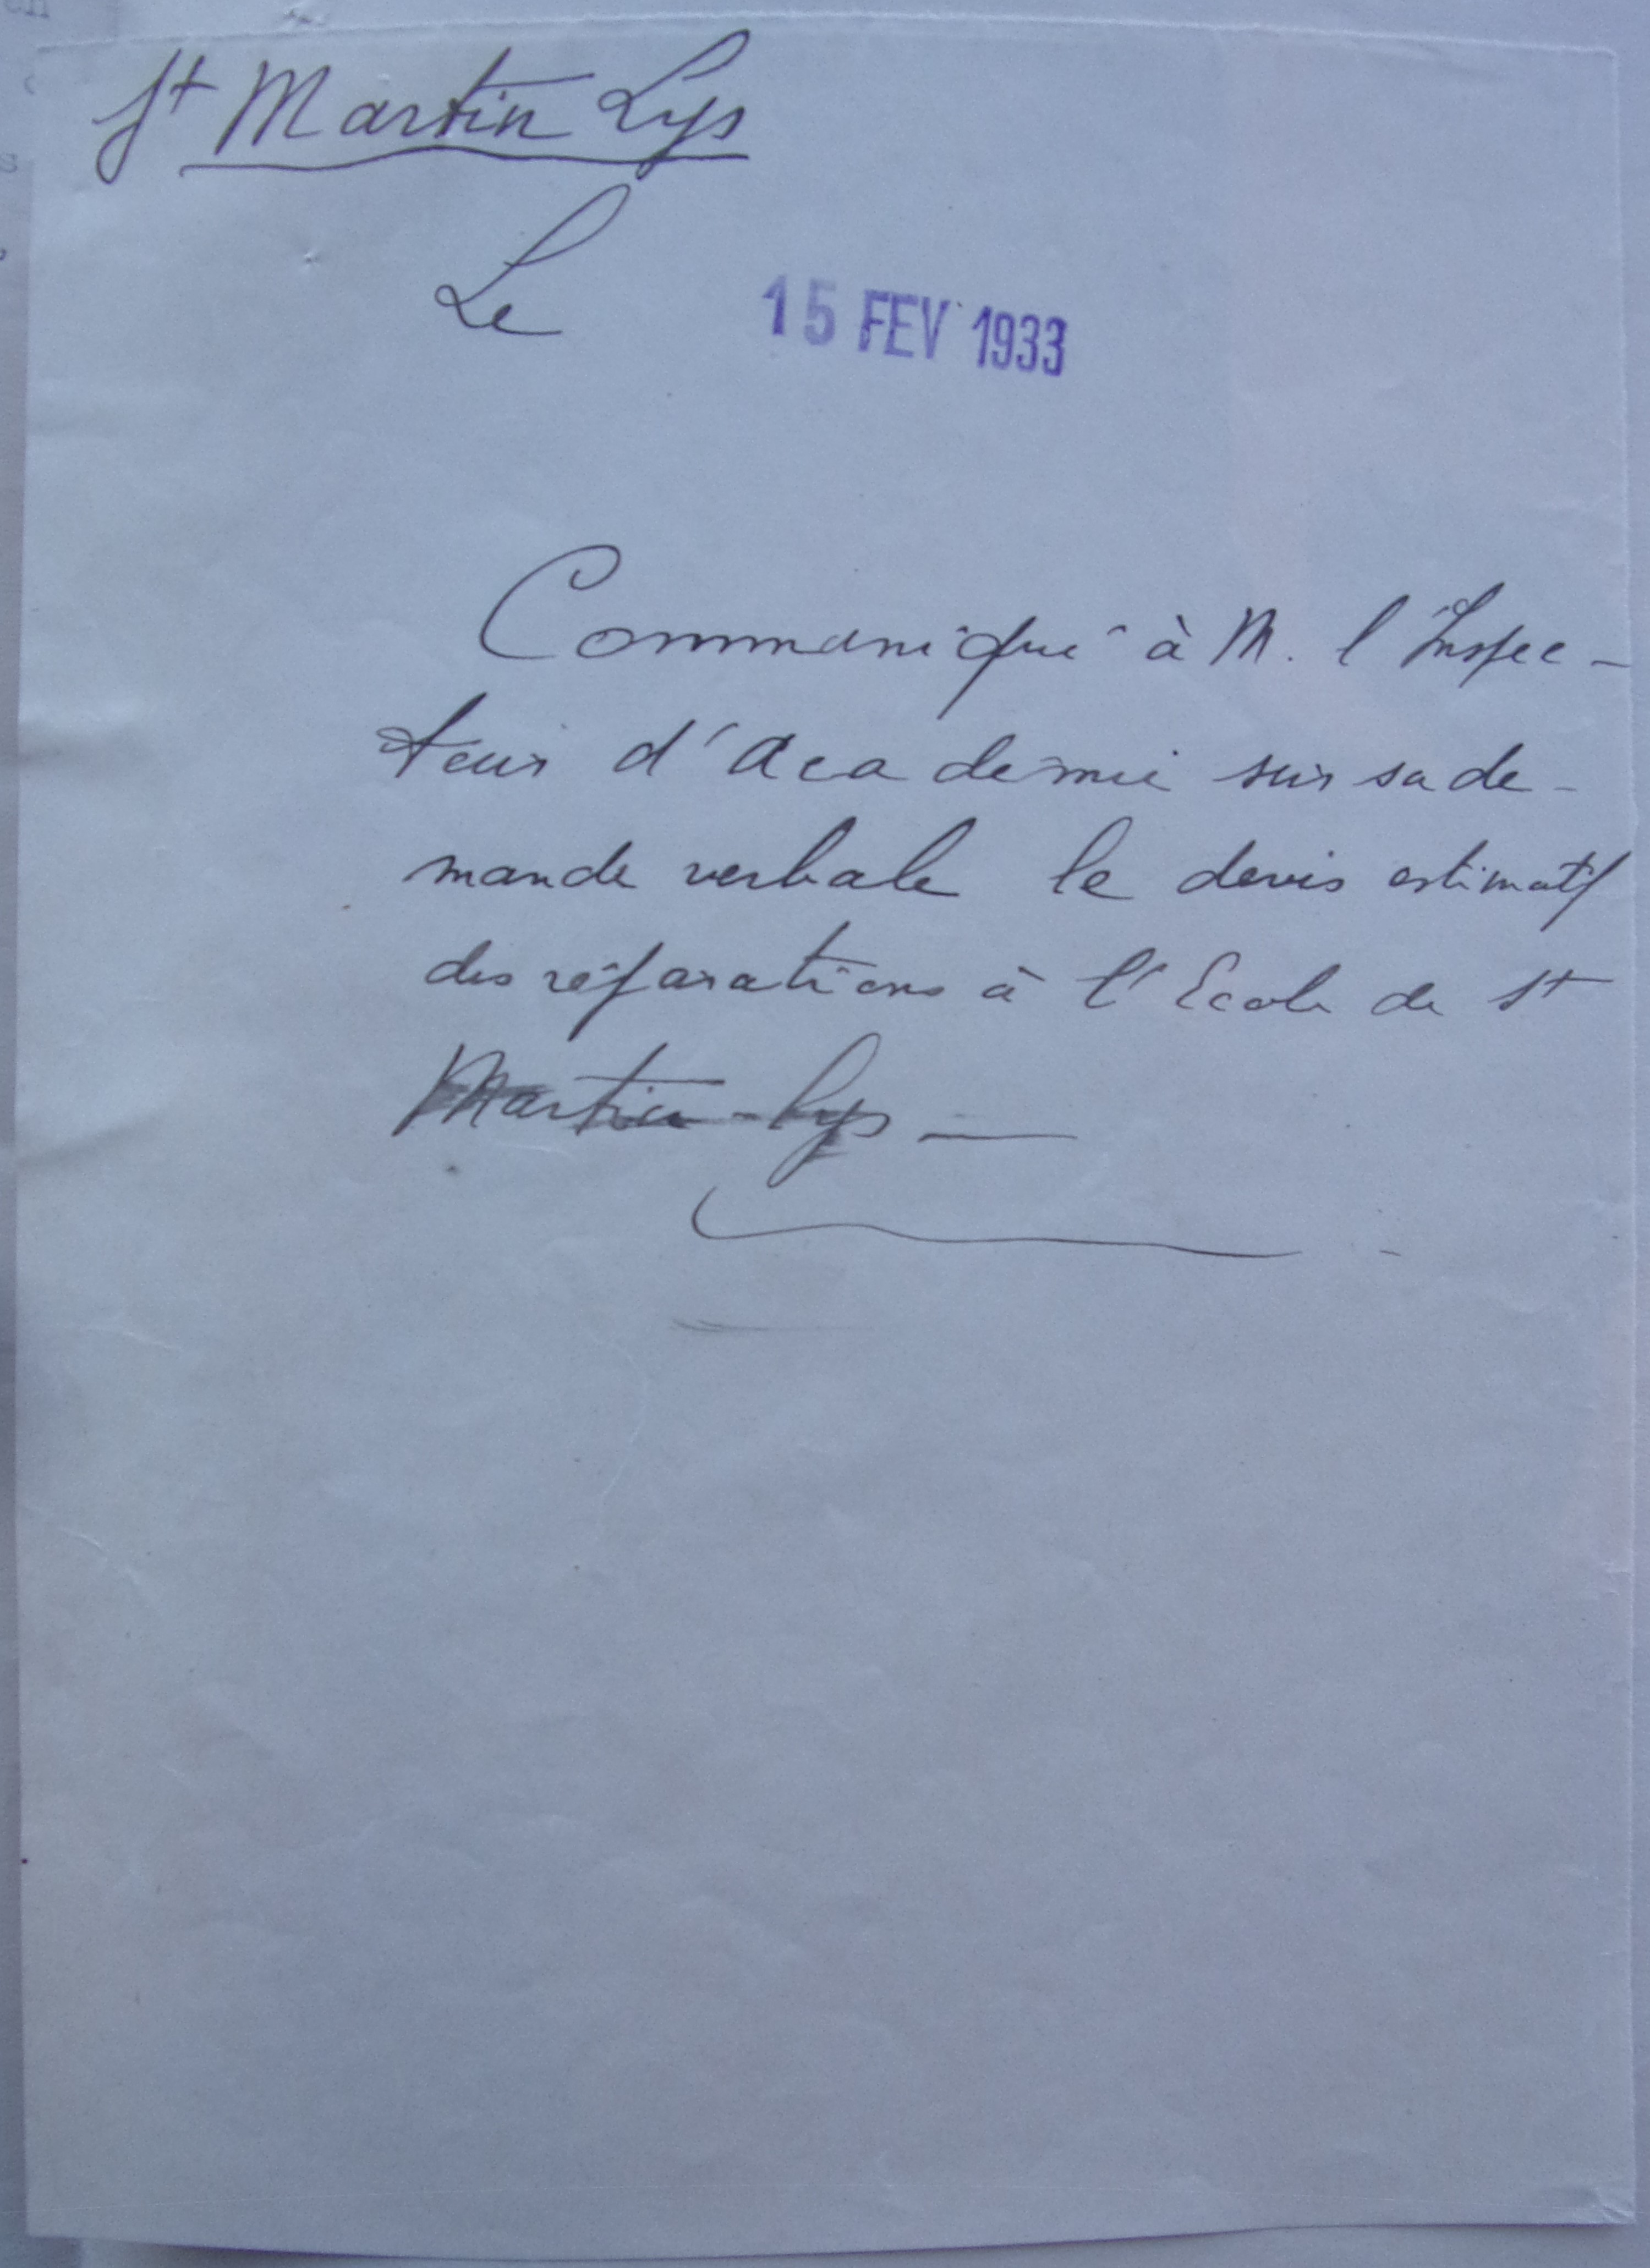 St Martin Lys
Le 15 FEV 1933
Communiqué à M. l'Inspec-
teur d'Académie sur sa de-
mande verbale le devis estimatif
des réparations à l'Ecole de St
Martin-Lys —